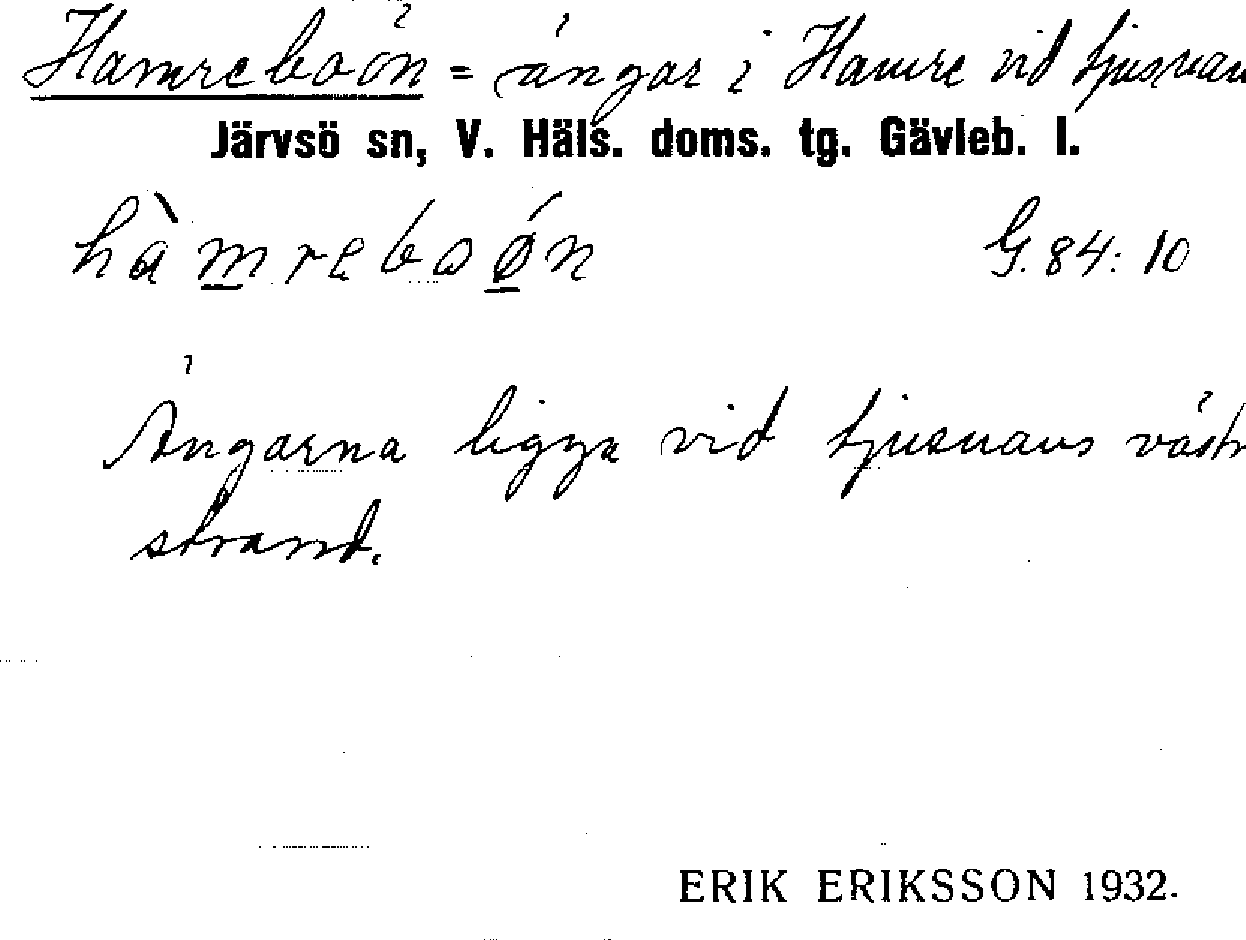 Hamreboön = ängar i Hamre vid Ljusnan
Järvsö sn, V. Häls. doms. tg. Gävleb. l.
hàmreboøn G. 84: 10
Ängarna ligga vid Ljusnans västr
strand.
ERIK ERIKSSON 1932.